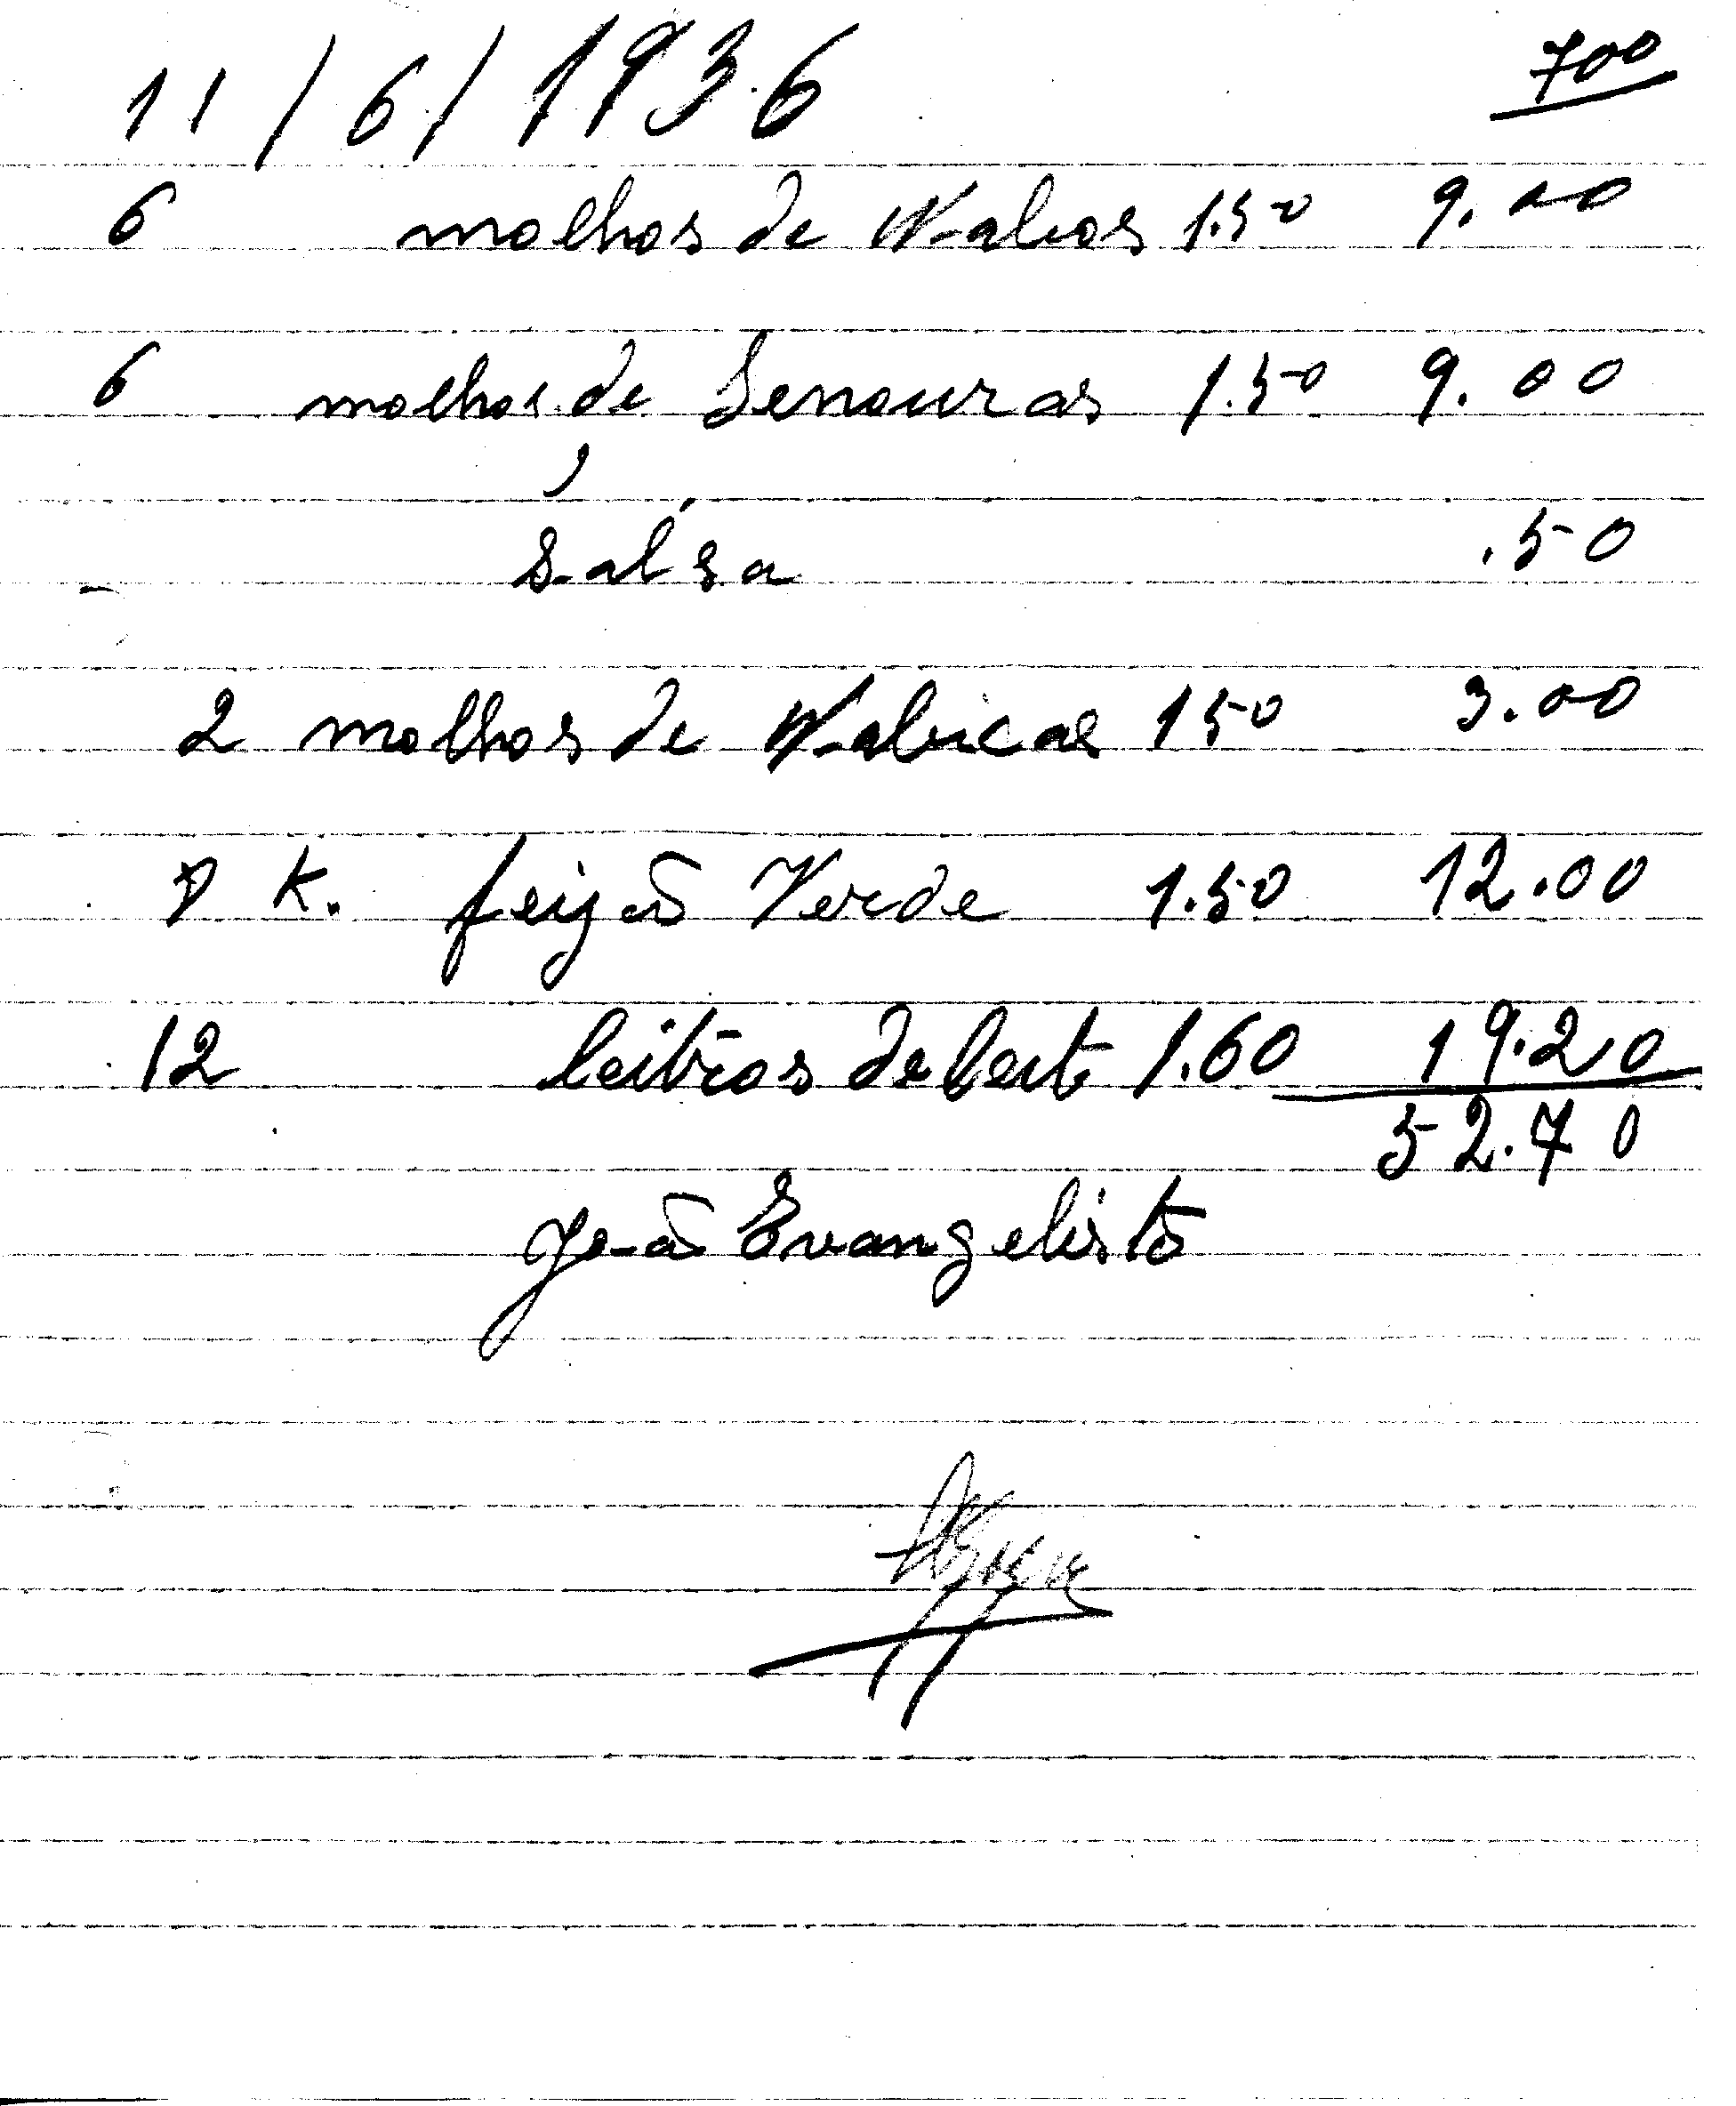 11/6/1936 700
6 molhos de Nabos 1.50 9.00
6 molhos de Senouras 1.50 9.00
Salsa .50
2 molhos de Nabicas 150 3.00
K. feijão Verde 1.50 12.00
12 leitros de leite 1.60 19.20
52.70
João Evangelista